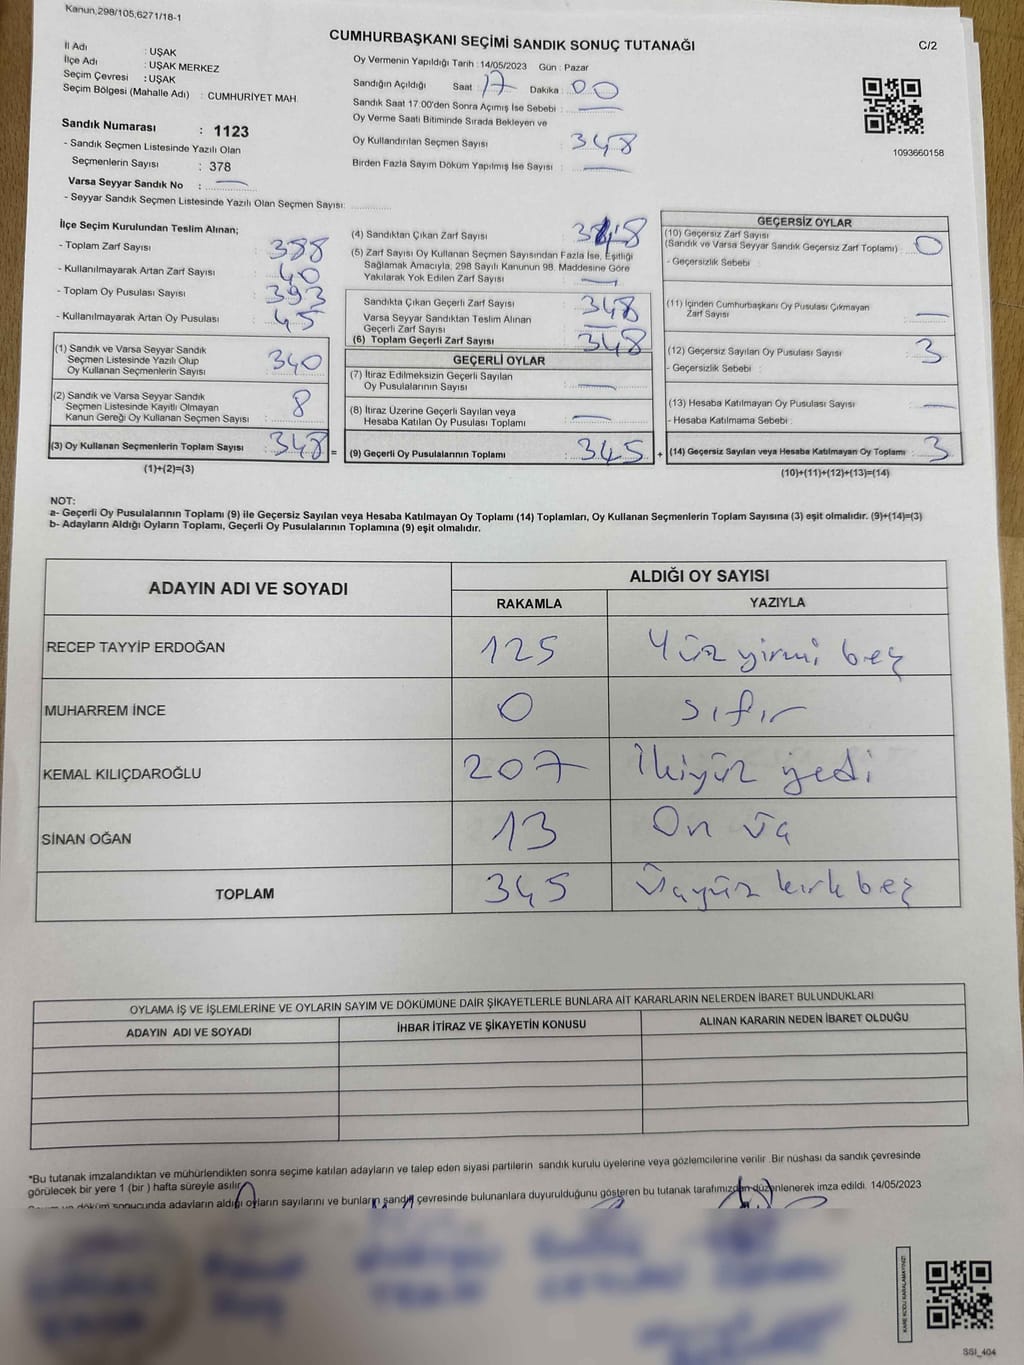 Kanun,298/105,6271/18-1
CUMHURBAŞKANI SEÇİMİ SANDIK SONUÇ TUTANAĞI
C/2
İl Adı : UŞAK
İlçe Adı : UŞAK MERKEZ
Seçim Çevresi : UŞAK
Seçim Bölgesi (Mahalle Adı) : CUMHURİYET MAH.
Sandık Numarası : 1123
- Sandık Seçmen Listesinde Yazılı Olan
Seçmenlerin Sayısı : 378
Varsa Seyyar Sandık No : —
- Seyyar Sandık Seçmen Listesinde Yazılı Olan Seçmen Sayısı:
Oy Vermenin Yapıldığı Tarih : 14/05/2023 Gün : Pazar
Sandığın Açıldığı Saat : 17 Dakika : 00
Sandık Saat 17:00'den Sonra Açımış İse Sebebi : —
Oy Verme Saati Bitiminde Sırada Bekleyen ve
Oy Kullandırılan Seçmen Sayısı : 348
Birden Fazla Sayım Döküm Yapılmış İse Sayısı : —
1093660158
İlçe Seçim Kurulundan Teslim Alınan;
- Toplam Zarf Sayısı : 388
- Kullanılmayarak Artan Zarf Sayısı : 40
- Toplam Oy Pusulası Sayısı : 393
- Kullanılmayarak Artan Oy Pusulası : 45
(1) Sandık ve Varsa Seyyar Sandık
Seçmen Listesinde Yazılı Olup
Oy Kullanan Seçmenlerin Sayısı : 340
(2) Sandık ve Varsa Seyyar Sandık
Seçmen Listesinde Kayıtlı Olmayan
Kanun Gereği Oy Kullanan Seçmen Sayısı : 8
(3) Oy Kullanan Seçmenlerin Toplam Sayısı : 348 =
(1)+(2)=(3)
(4) Sandıktan Çıkan Zarf Sayısı : 348
(5) Zarf Sayısı Oy Kullanan Seçmen Sayısından Fazla İse, Eşitliği
Sağlamak Amacıyla, 298 Sayılı Kanunun 98. Maddesine Göre
Yakılarak Yok Edilen Zarf Sayısı : —
Sandıkta Çıkan Geçerli Zarf Sayısı : 348
Varsa Seyyar Sandıktan Teslim Alınan
Geçerli Zarf Sayısı : —
(6) Toplam Geçerli Zarf Sayısı : 348
GEÇERLİ OYLAR
(7) İtiraz Edilmeksizin Geçerli Sayılan
Oy Pusulalarının Sayısı : —
(8) İtiraz Üzerine Geçerli Sayılan veya
Hesaba Katılan Oy Pusulası Toplamı : —
(9) Geçerli Oy Pusulalarının Toplamı : 345 +
GEÇERSİZ OYLAR
(10) Geçersiz Zarf Sayısı
(Sandık ve Varsa Seyyar Sandık Geçersiz Zarf Toplamı) : 0
- Geçersizlik Sebebi :
(11) İçinden Cumhurbaşkanı Oy Pusulası Çıkmayan
Zarf Sayısı : —
(12) Geçersiz Sayılan Oy Pusulası Sayısı : 3
- Geçersizlik Sebebi :
(13) Hesaba Katılmayan Oy Pusulası Sayısı : —
- Hesaba Katılmama Sebebi :
(14) Geçersiz Sayılan veya Hesaba Katılmayan Oy Toplamı : 3
(10)+(11)+(12)+(13)=(14)
NOT:
a- Geçerli Oy Pusulalarının Toplamı (9) ile Geçersiz Sayılan veya Hesaba Katılmayan Oy Toplamı (14) Toplamları, Oy Kullanan Seçmenlerin Toplam Sayısına (3) eşit olmalıdır. (9)+(14)=(3)
b- Adayların Aldığı Oyların Toplamı, Geçerli Oy Pusulalarının Toplamına (9) eşit olmalıdır.
ADAYIN ADI VE SOYADI
ALDIĞI OY SAYISI
RAKAMLA YAZIYLA
RECEP TAYYİP ERDOĞAN 125 Yüz yirmi beş
MUHARREM İNCE 0 sıfır
KEMAL KILIÇDAROĞLU 207 İkiyüz yedi
SİNAN OĞAN 13 On üç
TOPLAM 345 Üçyüz kırk beş
OYLAMA İŞ VE İŞLEMLERİNE VE OYLARIN SAYIM VE DÖKÜMÜNE DAİR ŞİKAYETLERLE BUNLARA AİT KARARLARIN NELERDEN İBARET BULUNDUKLARI
ADAYIN ADI VE SOYADI İHBAR İTİRAZ VE ŞİKAYETİN KONUSU ALINAN KARARIN NEDEN İBARET OLDUĞU
*Bu tutanak imzalandıktan ve mühürlendikten sonra seçime katılan adayların ve talep eden siyasi partilerin sandık kurulu üyelerine veya gözlemcilerine verilir. Bir nüshası da sandık çevresinde
görülecek bir yere 1 (bir ) hafta süreyle asılır.
sonucunda adayların aldığı oyların sayılarını ve bunların sandık çevresinde bulunanlara duyurulduğunu gösteren bu tutanak tarafımızdan düzenlenerek imza edildi. 14/05/2023
KARE KODU KARALAMAYINIZ!
SSI_404